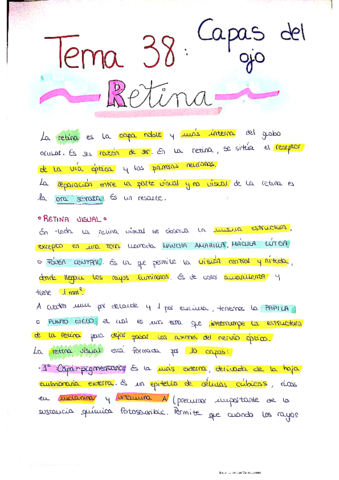 Capas del
Tema 38: ojo
Retina
La retina es la capa noble y más interna del globo
ocular. Es su razón de ser. En la retina, se sitúa el receptor
de la vía óptica y las primeras neuronas.
La separación entre la parte visual y no visual de la retina es
la ora serrata. Es un resalte.
• RETINA VISUAL:
En toda la retina visual se observa la misma estructura,
excepto en una zona llamada MANCHA AMARILLA, MÁCULA LÚTEA
o FÓVEA CENTRAL. Es la que permite la visión central y nítida,
donde llegan los rayos luminosos. Es de color amarillento y
tiene 1 mm².
A cuatro mm por delante y 1 por encima, tenemos la PAPILA
o PUNTO CIEGO, el cual es una zona que interrumpe la estructura
de la retina para dejar pasar los axones del nervio óptico.
La retina visual está formada por 10 capas:
· 1ª Capa: pigmentaria. Es la más externa, derivada de la hoja
embrionaria externa. Es un epitelio de células cúbicas, ricas
en melanina y vitamina A (precursor importante de la
sustancia química fotosensible. Permite que cuando los rayos